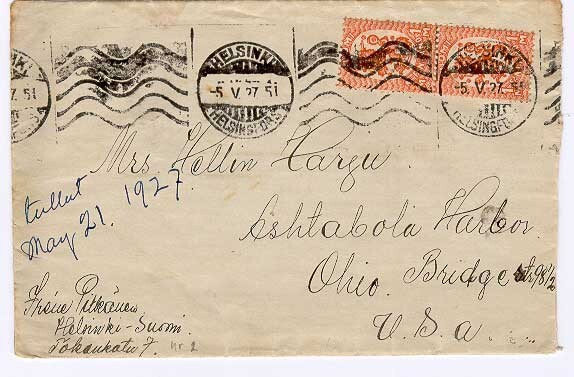 HELSINKI
-5.V.27.5I
HELSINGFORS
HELSINKI
-5.V.27
HELSINGFORS
7.5I
1 M
Mrs. Hellin Harju
Ashtabola Harbor.
Ohio. Bridge str. 98 1/2
U.S.a.
tullut
May 21. 1927.
Irene Pitkänen
Helsinki-Suomi.
7. nr. 2